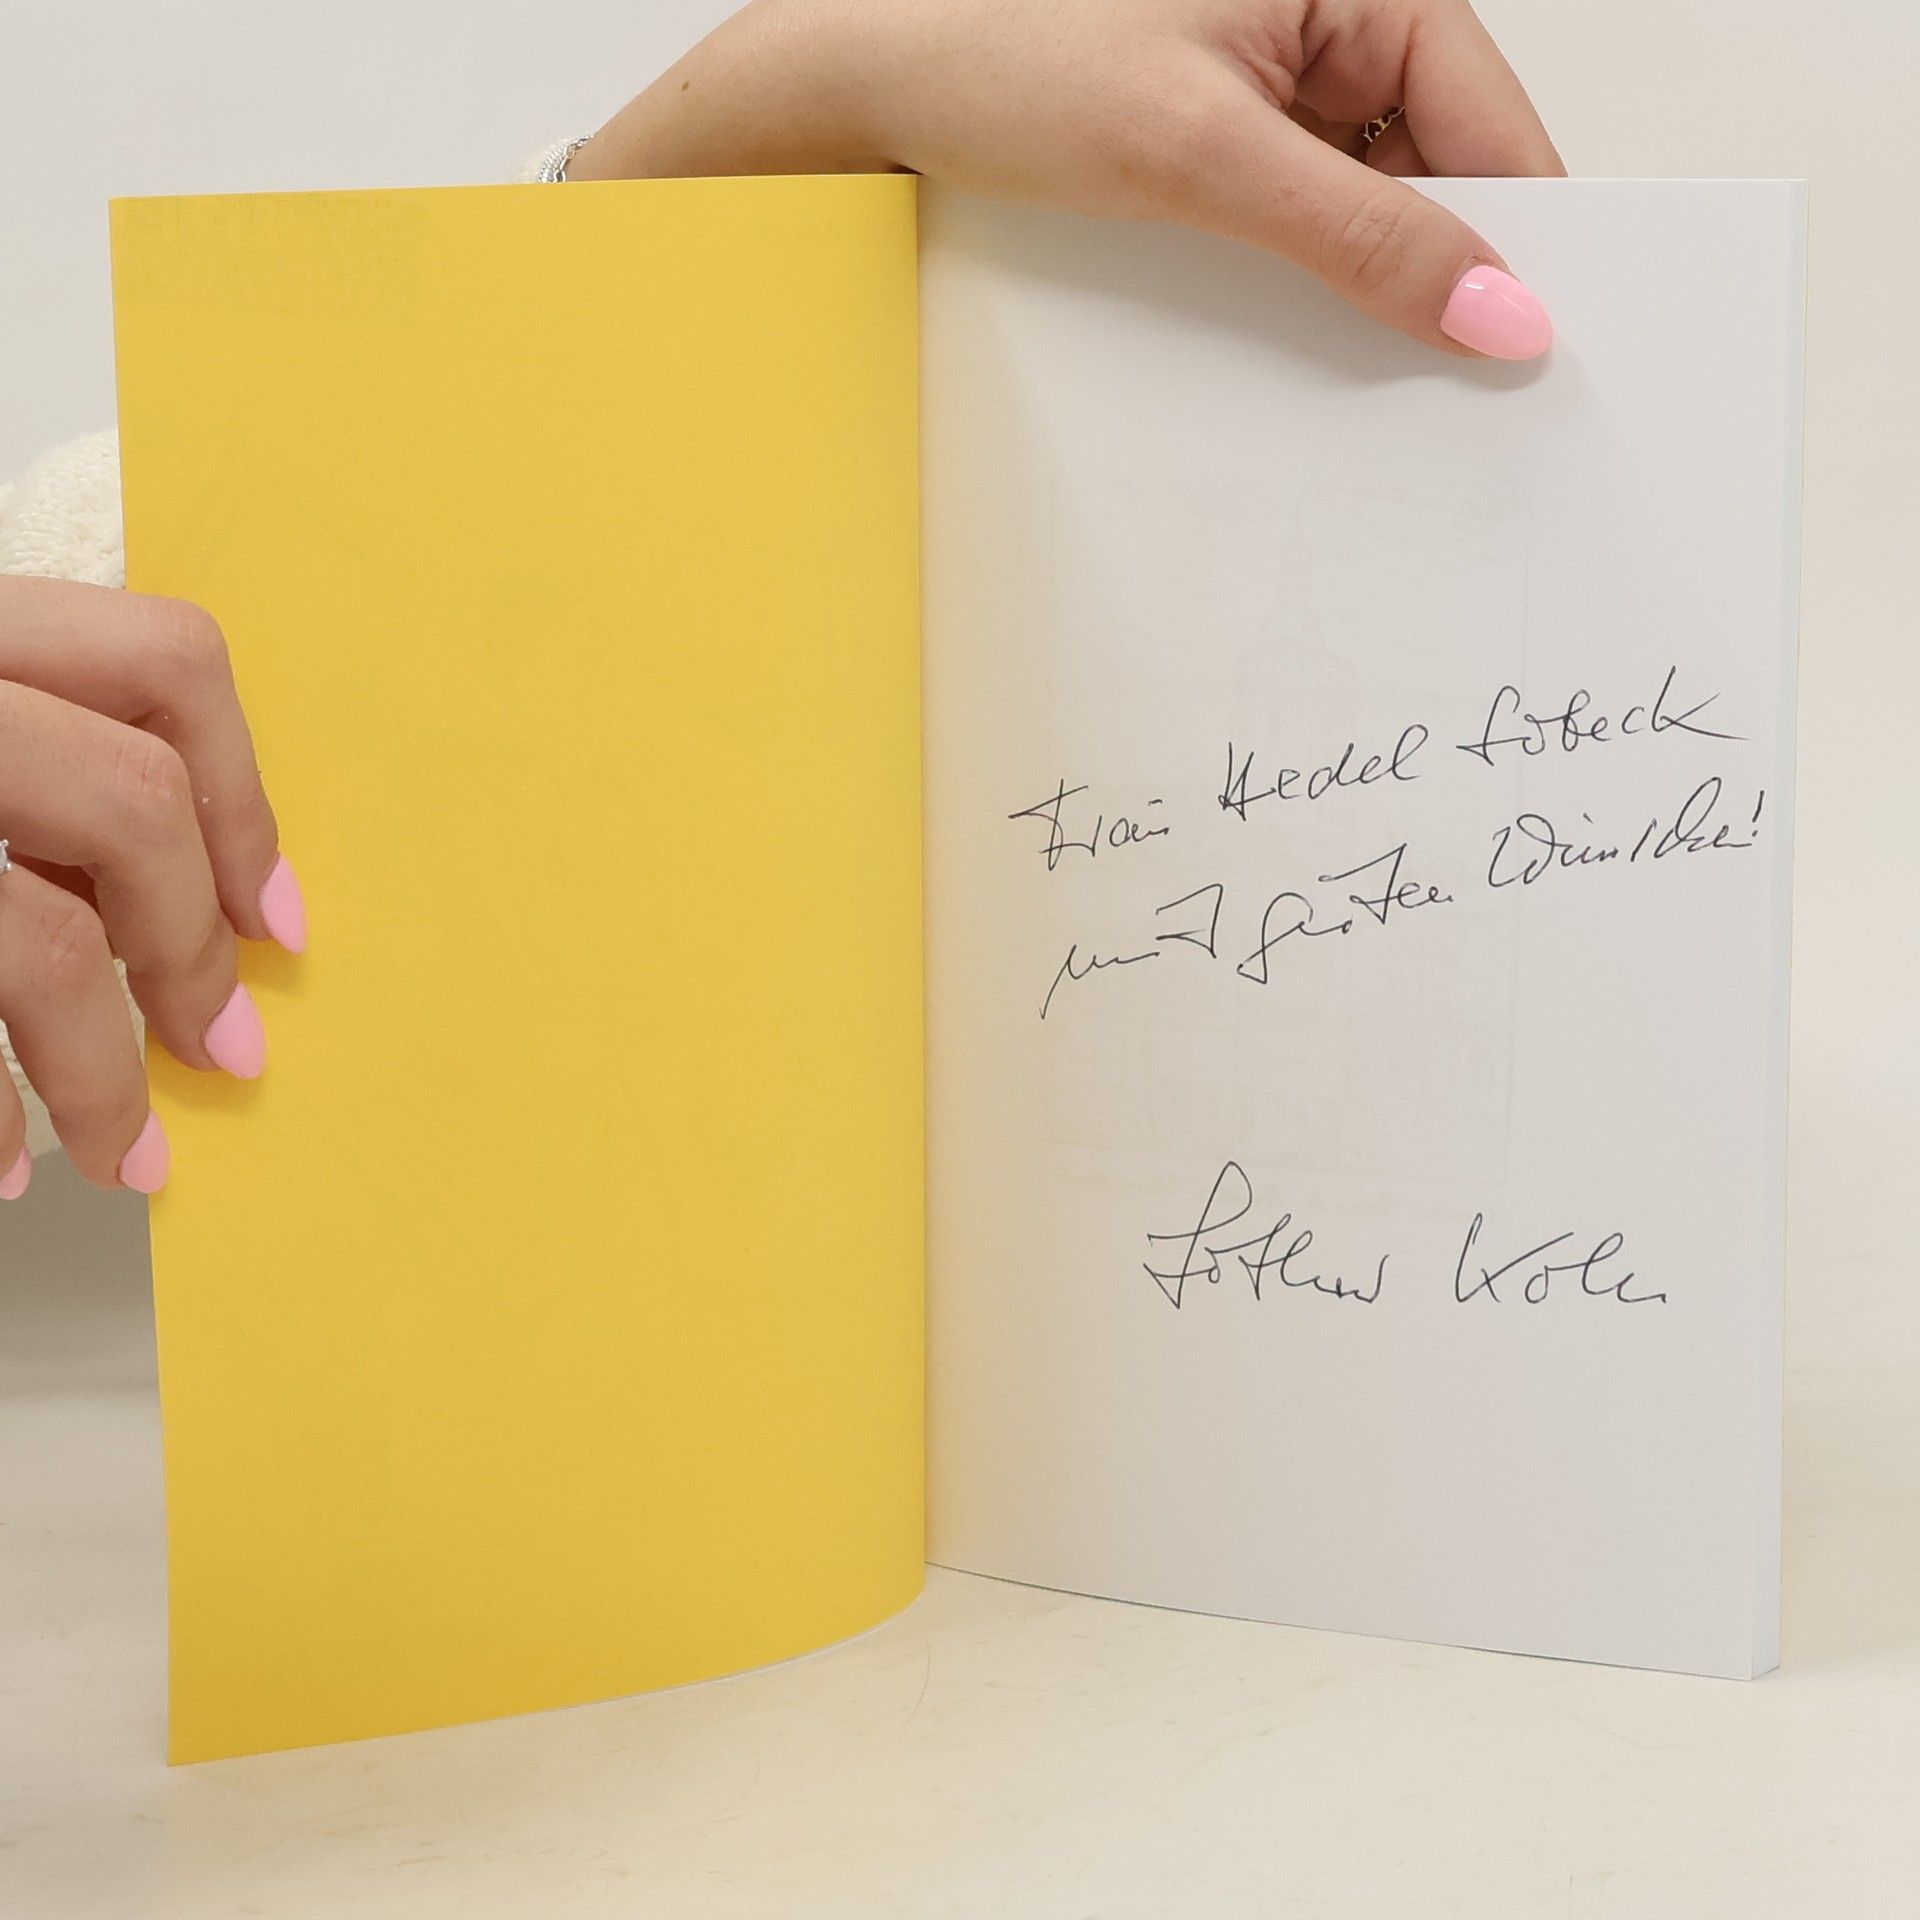 Frau Hedel Lobeck
mit guten Wünschen!
Lothar